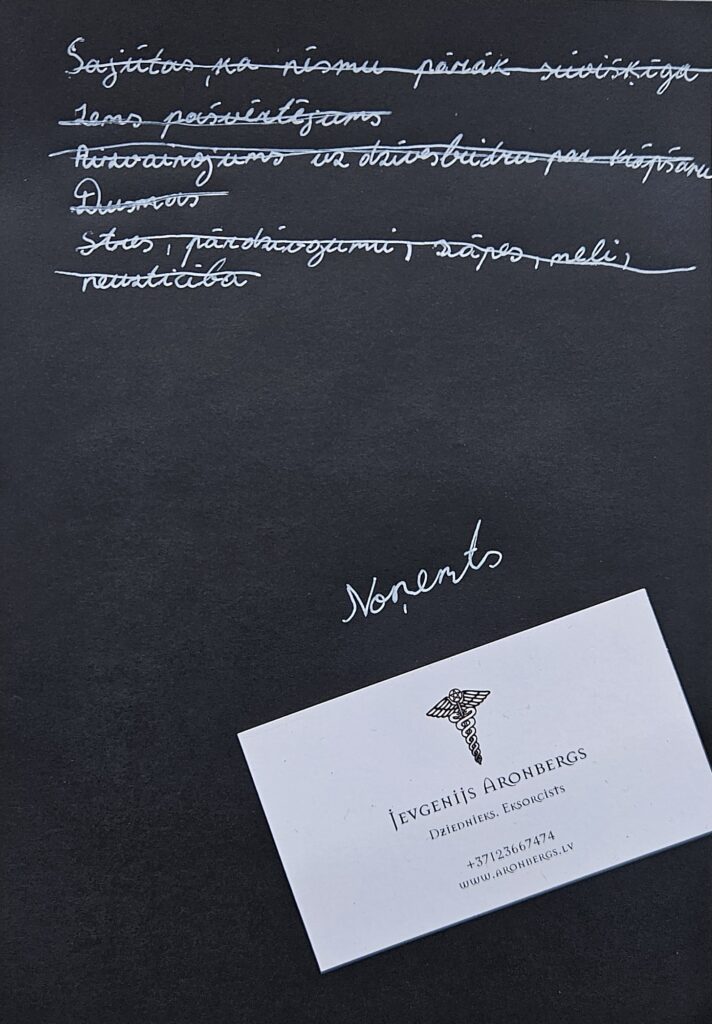 Sajūtas, ka nēsmu pārāk sievišķīga
Zems pašvērtējums
Aizvainojums uz dzīvesbiedru par krāpšanu
Dusmas
Stres, pārdzīvojumi, sāpes, meli,
neuzticība
Noņemts
Jevgenijs Aronbergs
Dziednieks, Eksorcists
+37123667474
www.aronbergs.lv